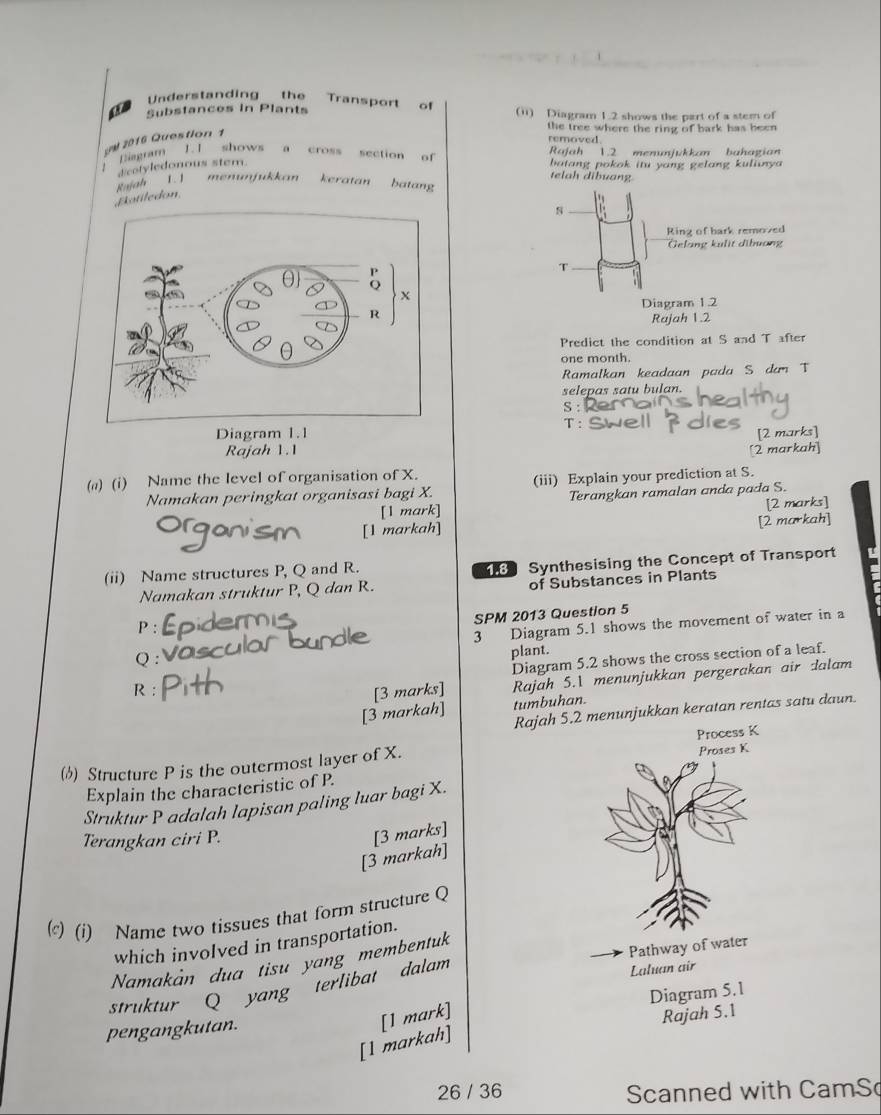 1.7 Understanding the Transport of
Substances in Plants
SPM 2016 Question 1
1 Diagram 1.1 shows a cross section of
dicotyledonous stem.
Rajah 1.1 menunjukkan keratan batang
dikotiledon.
P
Q
X
R
Diagram 1.1
Rajah 1.1
(a) (i) Name the level of organisation of X.
Namakan peringkat organisasi bagi X.
[1 mark]
[1 markah]
Organism
(ii) Name structures P, Q and R.
Namakan struktur P, Q dan R.
P : Epidermis
Q : Vascular bundle
R : Pith
[3 marks]
[3 markah]
(b) Structure P is the outermost layer of X.
Explain the characteristic of P.
Struktur P adalah lapisan paling luar bagi X.
Terangkan ciri P.
[3 marks]
[3 markah]
(c) (i) Name two tissues that form structure Q
which involved in transportation.
Namakan dua tisu yang membentuk
struktur Q yang terlibat dalam
pengangkutan.
[1 mark]
[1 markah]
(ii) Diagram 1.2 shows the part of a stem of
the tree where the ring of bark has been
removed.
Rajah 1.2 menunjukkan bahagian
batang pokok itu yang gelang kulitnya
telah dibuang.
S
Ring of bark removed
Gelang kulit dibuang
T
Diagram 1.2
Rajah 1.2
Predict the condition at S and T after
one month.
Ramalkan keadaan pada S dan T
selepas satu bulan.
S : Remains healthy
T : Swell & dies
[2 marks]
[2 markah]
(iii) Explain your prediction at S.
Terangkan ramalan anda pada S.
[2 marks]
[2 markah]
1.8 Synthesising the Concept of Transport
of Substances in Plants
SPM 2013 Question 5
3 Diagram 5.1 shows the movement of water in a
plant.
Diagram 5.2 shows the cross section of a leaf.
Rajah 5.1 menunjukkan pergerakan air dalam
tumbuhan.
Rajah 5.2 menunjukkan keratan rentas satu daun.
Process K
Proses K
Pathway of water
Laluan air
Diagram 5.1
Rajah 5.1
26 / 36
Scanned with CamSc